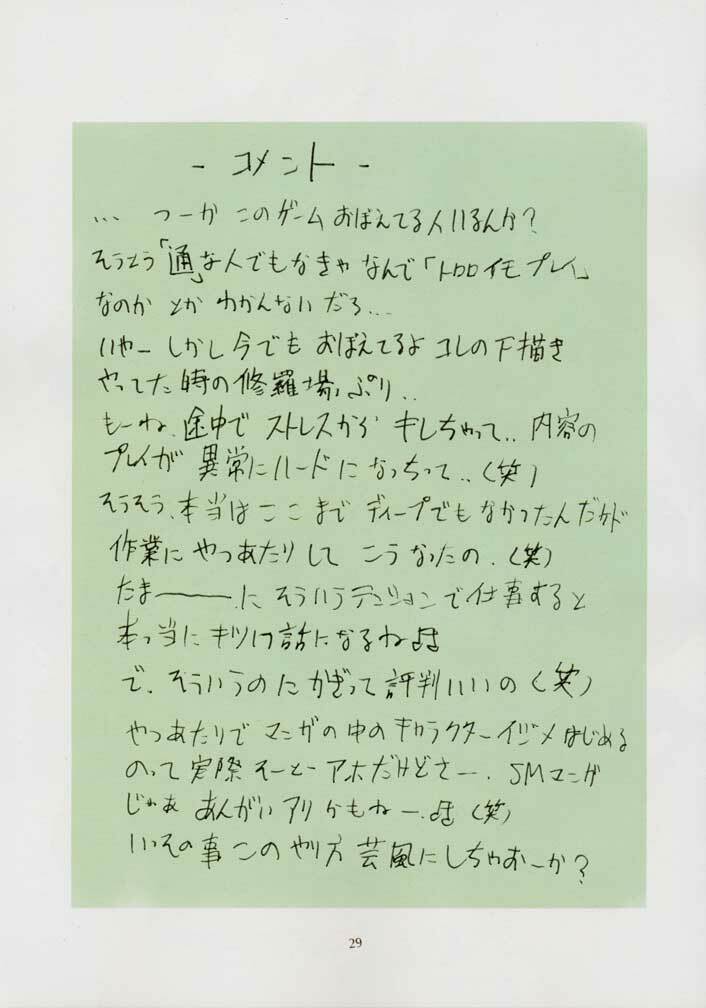 - コメント -
... つーか このゲーム おぼえてる人いるんか?
そうとう「通」な人でもなきゃ なんで「トロロイモプレイ」
なのか とか わかんないだろ...
いやー しかし今でも おぼえてるよ コレの下描き
やってた時の修羅場っぷり..
もーね、途中で ストレスから キレちゃって.. 内容の
プレイが 異常にハードになっちって..(笑)
そうそう、本当は ここまで ディープでもなかったんだけド
作業に やつあたりして こうなったの.(笑)
たまーーーーに そういうテンションで仕事すると
本っ当に キツい話になるね♪♬
で、そういうのに かぎって 評判いいの(笑)
やつあたりで マンガの中の キャラクターイジメ はじめる
のって 実際 そーとー アホだけどさー. SMマンガ
じゃぁ あんがい アリ かもねー.♪♬(笑)
いっその事 このやり方 芸風にしちゃおーか?
29